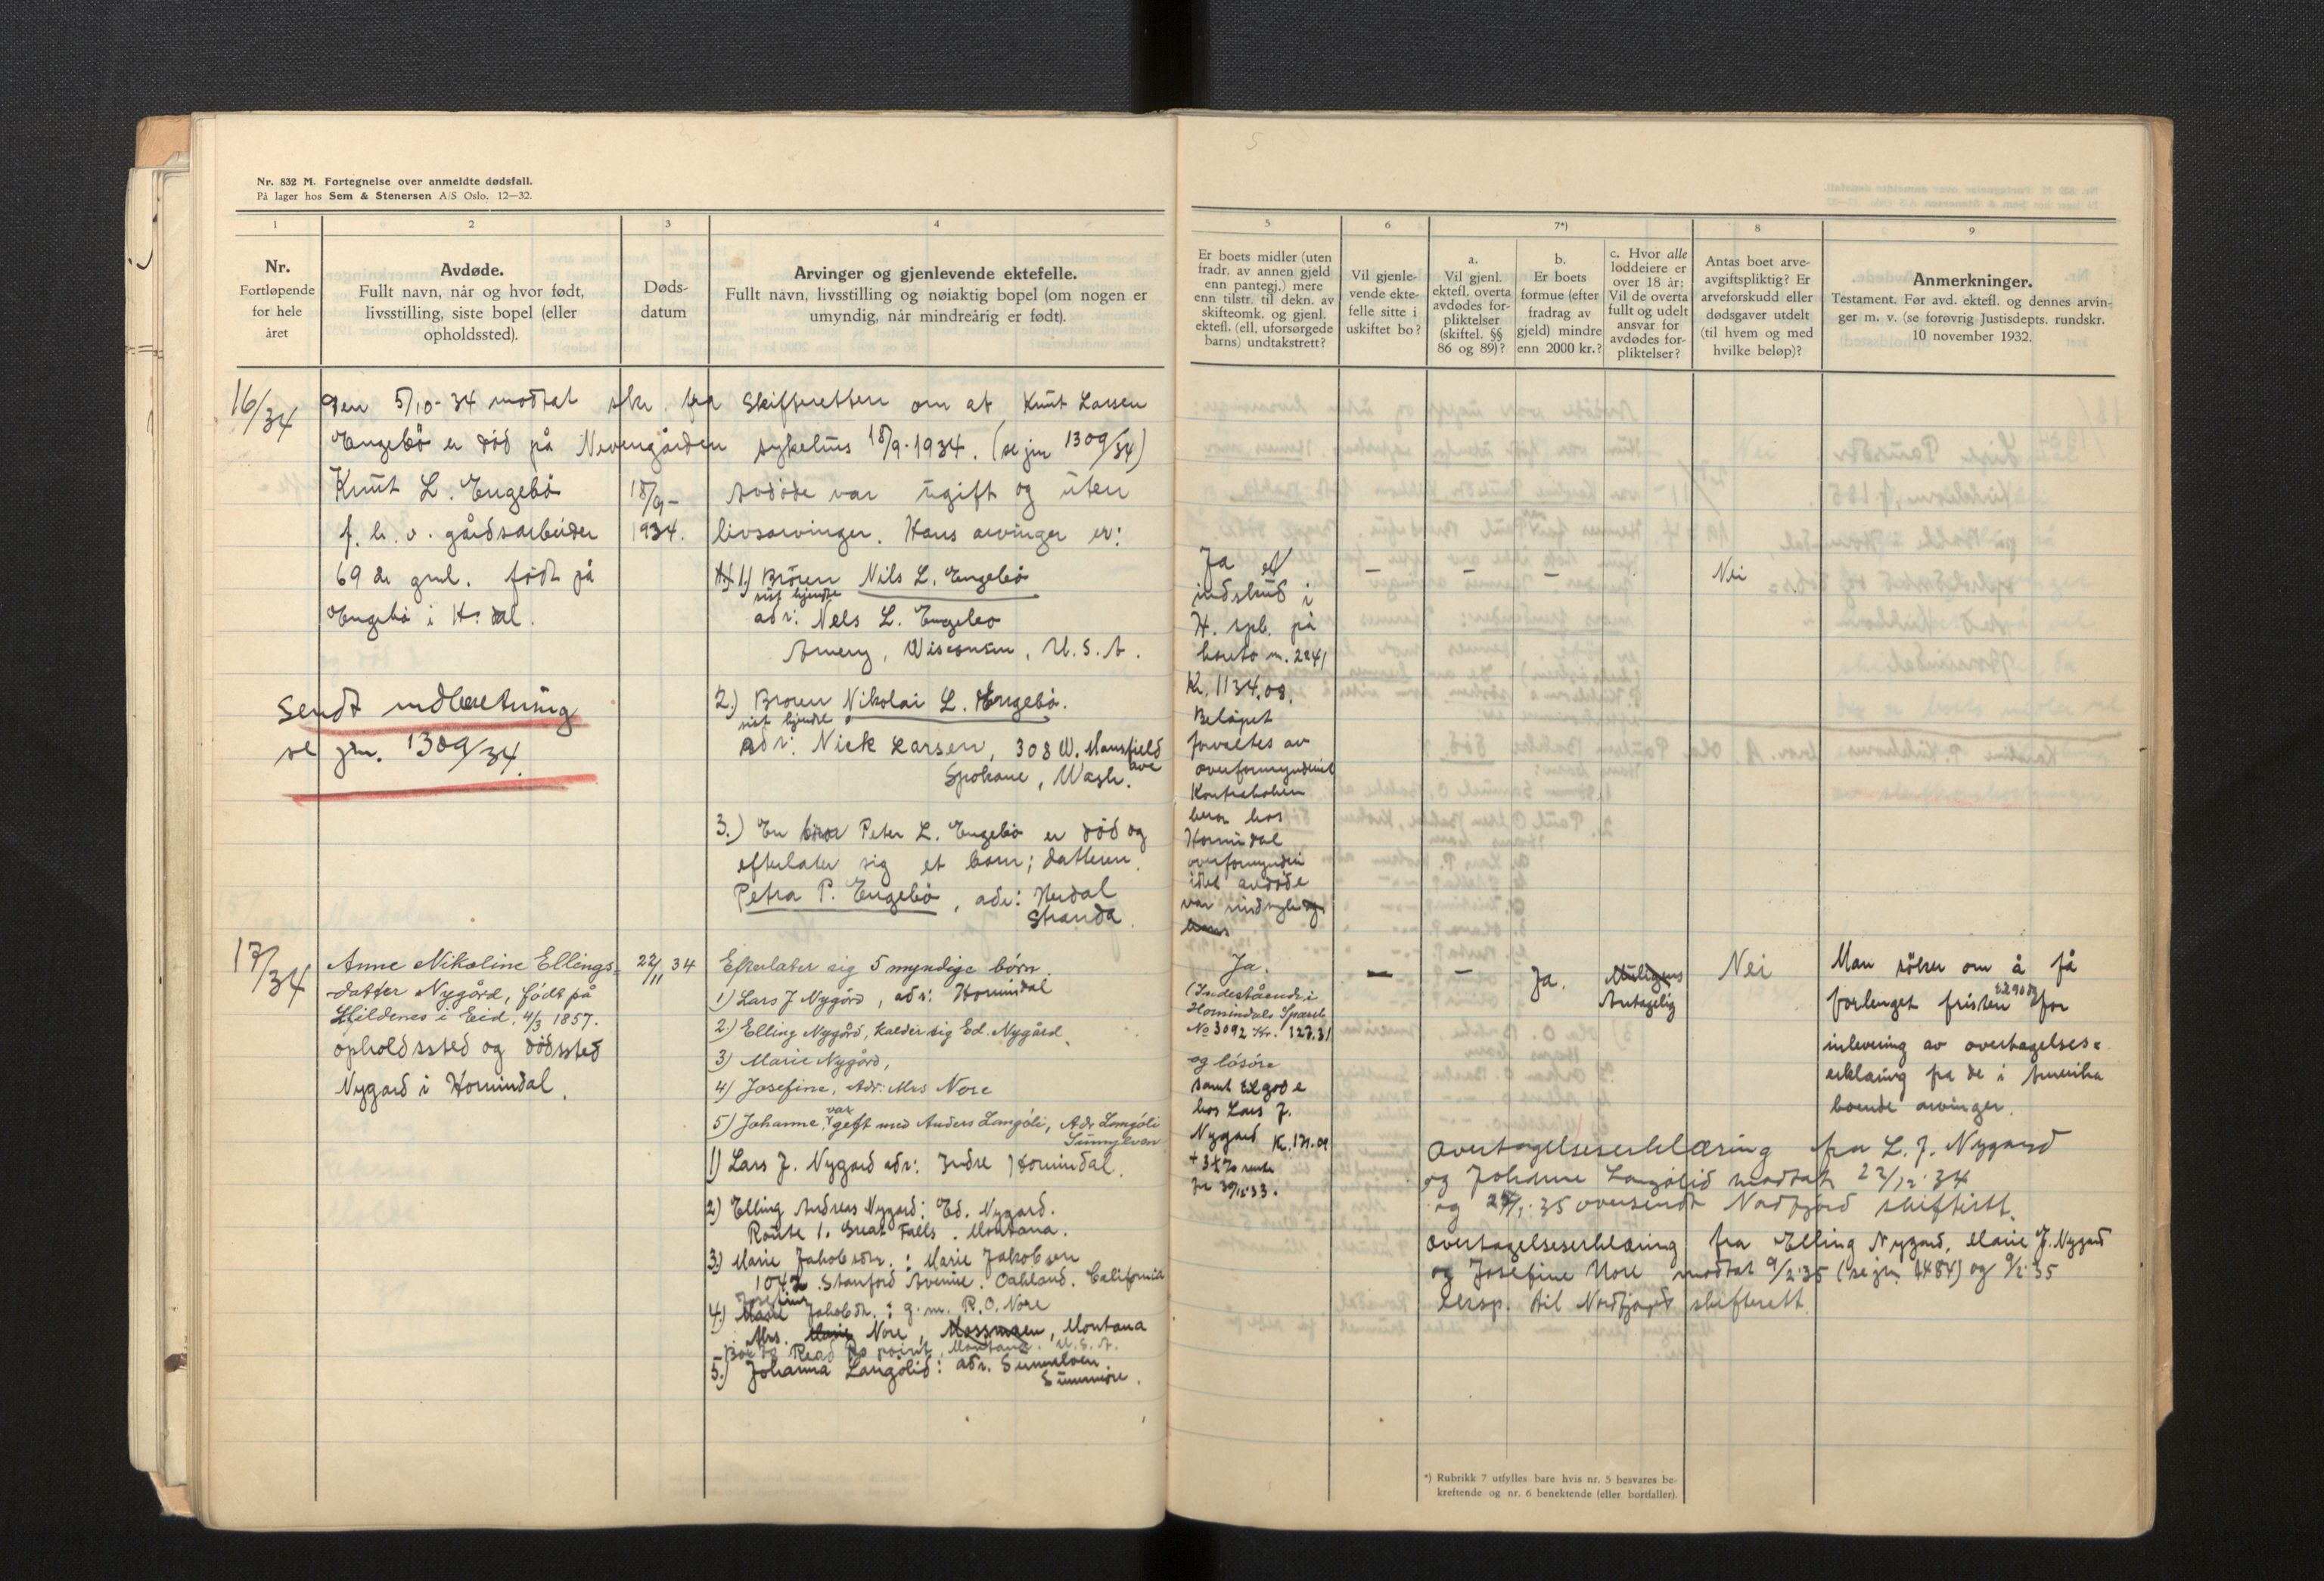 Nr. 832 M. Fortegnelse over anmeldte dødsfall.
På lager hos Sem & Stenersen A/S Oslo. 12—32.
1
2
3
4
Nr.
Fortløpende
for hele
året
Avdøde.
Fullt navn, når og hvor født,
livsstilling, siste bopel (eller
opholdssted).
Døds-
datum
Arvinger og gjenlevende ektefelle.
Fullt navn, livsstilling og nøiaktig bopel (om nogen er
umyndig, når mindreårig er født).
16/34
Den 5/10-34 modtat skr. fra Skifteretten om at Knut Larsen
Engebö er död på Nevengården sykehus 18/9-1934. (se jm 1309/34)
Knut L. Engebö
f. h. v. gårdsarbeider
69 år gml. født på
Engebö i H.dal.
18/9-
1934.
Avdöde var ugift og uten
livsarvinger. Hans arvinger er:
1) Broren Nils L. Engebö
sist kjendte
adr: Nels L. Engebo
Amery, Wisconsin, U.S.A.
2.) Broren Nikolai L. Engebö.
sist kjendte
adr: Nick Larsen, 308 W. Mansfield
ave
Spokane, Wash.
3.) En bror Peter L. Engebö er död og
efterlater sig et barn; datteren
Petra P. Engebö, adr: Herdal
Stranda.
Sendt indberetning
se jm. 1309/34.
17/34
Anne Nikoline Ellings-
datter Nygård, født på
Hildenes i Eid, 4/3 1857.
opholdssted og dödssted
Nygard i Hornindal.
22/11 34
Efterlater sig 5 myndige börn.
1) Lars J Nygård, adr: Hornindal
2) Elling Nygård, kalder sig Ed. Nygård.
3) Marie Nygård,
4) Josefine, Adr: Mrs Nore
5) Johanne, var gift med Anders Langöli, Adr Langöli
Sunnylven
1) Lars J. Nygard adr: Indre Hornindal.
2) Elling Andreas Nygard: Ed. Nygard.
Route 1. Great Falls. Montana.
3) Marie Jakobsdtr.: Marie Jakobsen
1042 Stanford Avenue. Oakland. California
Josefine
4.) Marie Jakobsdtr.: g. m. P.O. Nore
Mrs. Marie Nore, Montana
Montana. U.S.A.
5.) Johanna Langölid: adr. Sunnelven.
Sunnmöre.
5
5
6
7*)
8
9
Er boets midler (uten
fradr. av annen gjeld
enn pantegj.) mere
enn tilstr. til dekn. av
skifteomk. og gjenl.
ektefl. (ell. uforsørgede
barns) undtakstrett?
Vil gjenle-
vende ekte-
felle sitte i
uskiftet bo?
a.
Vil gjenl.
ektefl. overta
avdødes for-
pliktelser
(skiftel. §§
86 og 89)?
b.
Er boets
formue (efter
fradrag av
gjeld) mindre
enn 2000 kr.?
c. Hvor alle
loddeiere er
over 18 år:
Vil de overta
fullt og udelt
ansvar for
avdødes for-
pliktelser?
Antas boet arve-
avgiftspliktig? Er
arveforskudd eller
dødsgaver utdelt
(til hvem og med
hvilke beløp)?
Anmerkninger.
Testament. Før avd. ektefl. og dennes arvin-
ger m. v. (se forøvrig Justisdepts. rundskr.
10 november 1932.
Ja et
indskud i
H. spb. på
konto nr. 2241
Kr. 1134.08.
Belöpet
forvaltes av
overformynderiet
Kontraboken
beror hos
Hornindal
overformynderi
idet avdöde
var
–
–
–
Nei
Ja.
(Indestående i
Hornindals Spareb
No 3092 kr. 127.31
og lösöre
samt tilgode
hos Lars J.
Nygard Kr. 171.09
rente
–
–
Ja.
Muligens
Antagelig
Nei
Man söker om å få
forlenget fristen for
inlevering av overtagelses-
erklæring fra de i Amerika
boende arvinger.
Overtagelseserklæring fra L. J. Nygard
og Johanne Langölid modtat 22/12-34
og 35 oversendt Nordfjord skifterett.
Overtagelseserklæring fra Elling Nygard, Marie J. Nygard
og Josefine Nore modtat 9/2-35 (se jn. 1484) og 9/2-35
eksp. til Nordfjord skifterett.
*) Rubrikk 7 utfylles bare hvis nr. 5 besvares be-
kreftende og nr. 6 benektende (eller bortfaller).